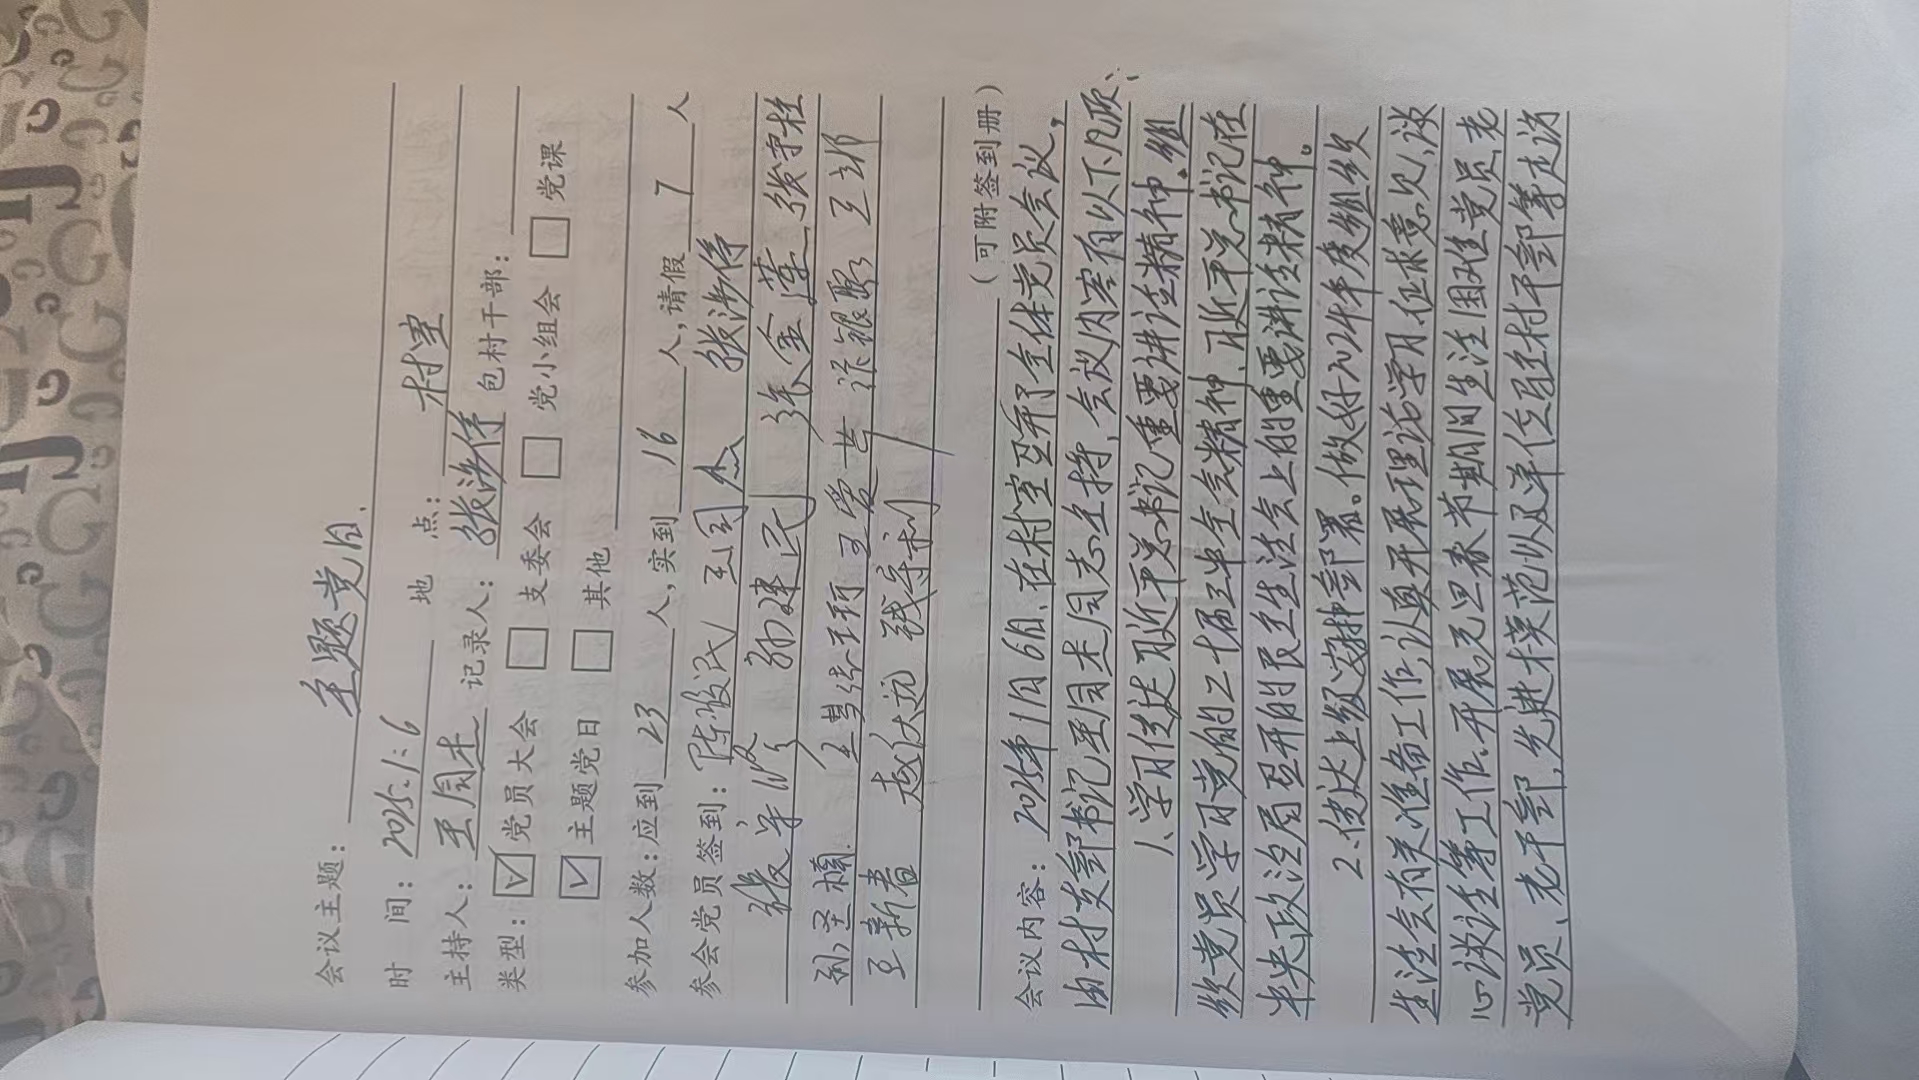 会议主题： 主题党日.
时 间：2025.1.6 地 点： 村里
主持人：王同杰 记录人：张涉停 包村干部：
类型：☑党员大会 □支委会 □党小组会 □党课
☑主题党日 □其他
参加人数：应到 23 人，实到 16 人，请假 7 人
参会党员签到：陈俊民 王同杰 张涉停
张学俊 孙建民 张金莲 张守柱
王
王新春 赵伏远 钱守利
（可附签到册）
会议内容：2025年1月6日、在村室召开了全体党员会议，
由村支部书记王同杰同志主持、会议内容有以下几项：
1、学习传达习近平总书记重要讲话精神.组
织党员学习党的二十届三中全会精神、习近平总书记在
中央政治局召开的民主生活会上的重要讲话精神。
2、传达上级安排部署。做好2024年度组织
生活会有关准备工作，认真开展理论学习、征求意见、谈
心谈话等工作、开展元旦春节期间生活困难党员、老
党员、老干部，先进模范以及单位驻村干部等走访